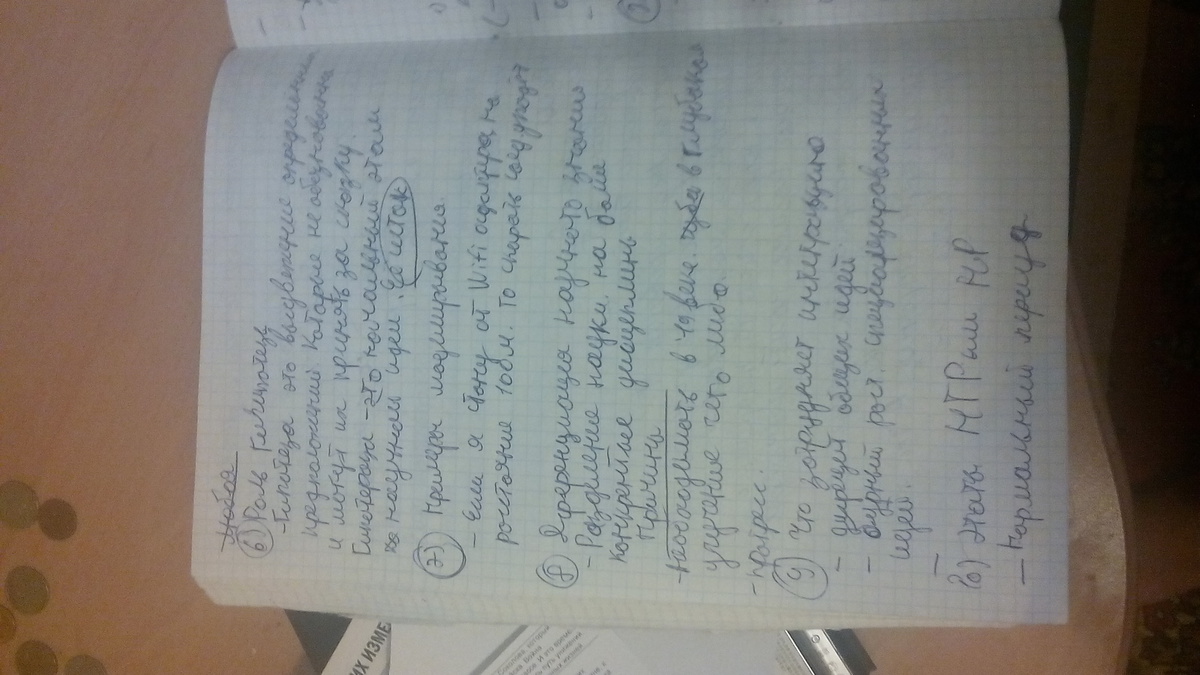 6) Роль Гипнотез
- Гипотеза это выдвежение определённых
предположений которые не обоснованы
и могут их принять за сказку.
Гипотераза - это начальный этап
научных идеи. Её исток
7) Примеры моделирования.
- Если я стону от Wifi адаптера на
ростояние 100м. То скорость
8) Дифранциация научного знания
- Разделение науки на более
конкретные дисциплины
Причины
- Необходимость в 19 веке. в глубокая
изучение чего либо.
- прогресс.
9) Что затрудняет интеграцию
- дифицит общих идей
- бурный рост специализированных
идей.
10) Этапы НТР или НР
- Нормальный период
ИХ ИЗМЕ